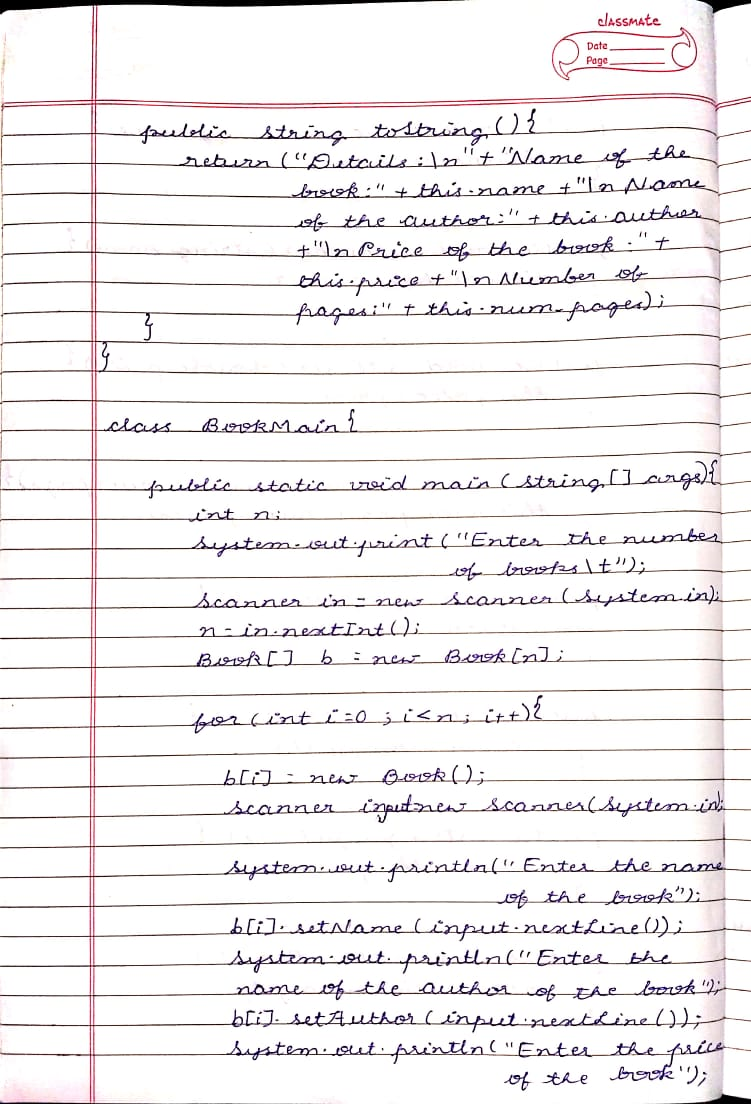 classmate
Date
Page
public string toString() {
return ("Details :\n" + "Name of the
book:" + this.name + "\n Name
of the author:" + this.author
+ "\n Price of the book :" +
this.price + "\n Number of
pages:" + this.num_pages);
}
}
class BookMain {
public static void main (string [] args) {
int n;
System.out.print ("Enter the number
of books \t");
scanner in = new scanner (System.in);
n = in.nextInt ();
Book [] b = new Book [n];
for (int i=0 ; i<n ; i++) {
b[i] = new Book ();
scanner input=new scanner (System.in);
System.out.println (" Enter the name
of the book");
b[i].setName (input.nextLine ());
System.out.println (" Enter the
name of the author of the book");
b[i].setAuthor (input.nextLine ());
System.out.println ("Enter the price
of the book");